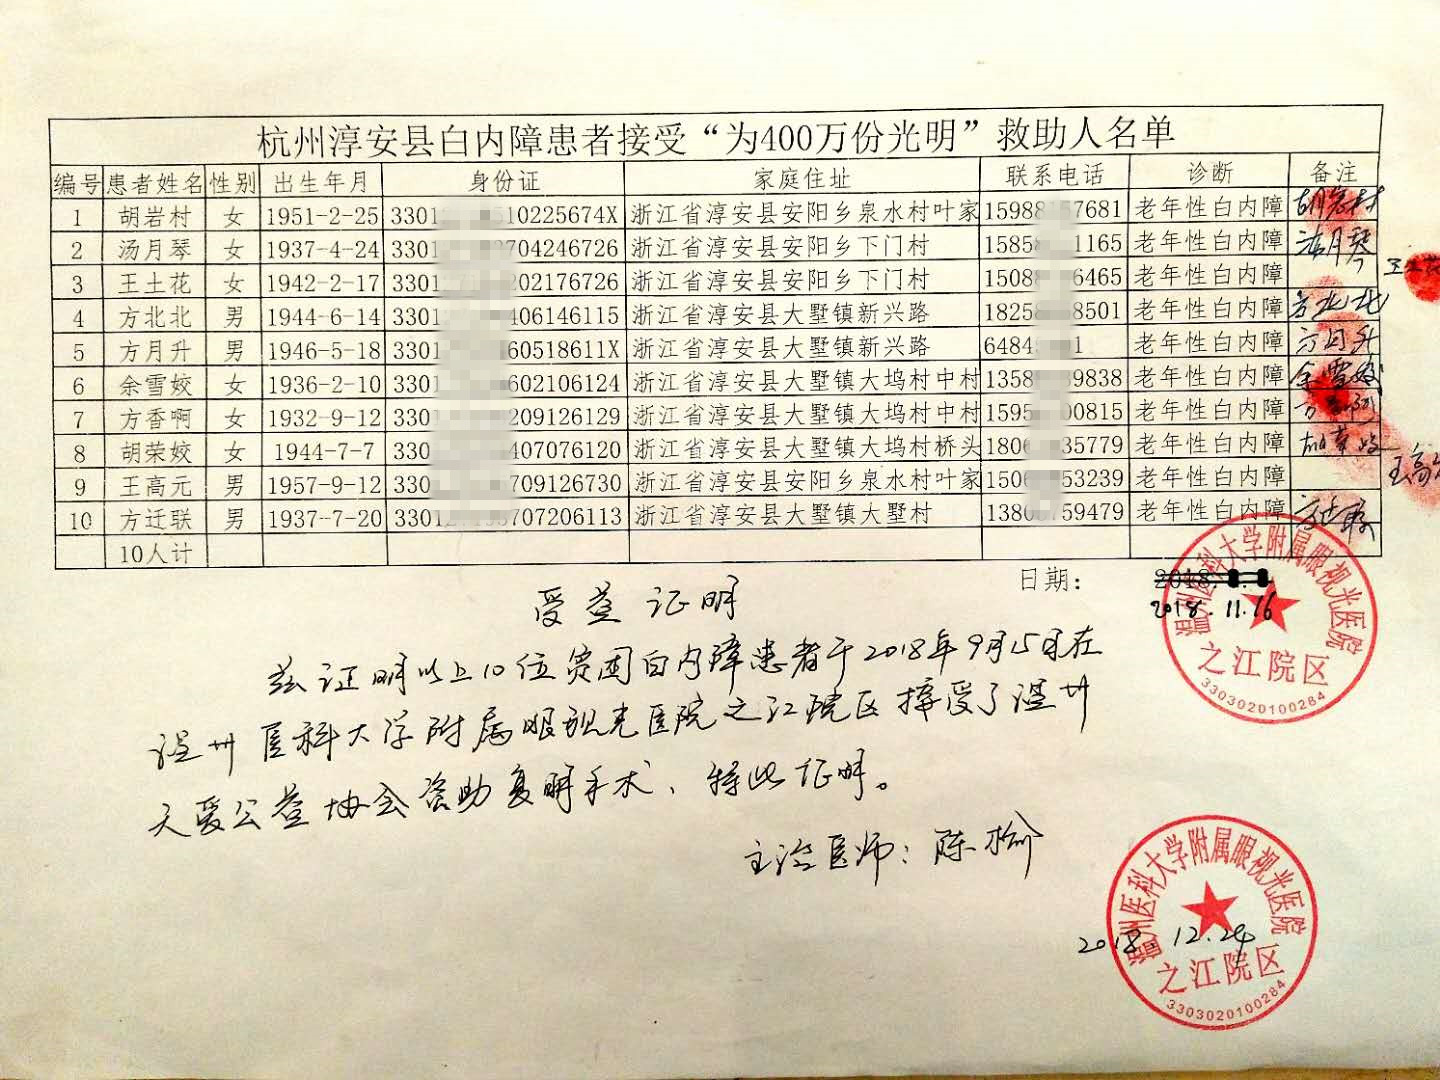 杭州淳安县白内障患者接受“为400万份光明”救助人名单
编号 患者姓名 性别 出生年月 身份证 家庭住址 联系电话 诊断 备注
1 胡岩村 女 1951-2-25 3301 510225674X 浙江省淳安县安阳乡泉水村叶家 15988 57681 老年性白内障 胡岩村
2 汤月琴 女 1937-4-24 3301 3704246726 浙江省淳安县安阳乡下门村 1585 1165 老年性白内障 汤月琴
3 王土花 女 1942-2-17 3301 202176726 浙江省淳安县安阳乡下门村 1508 6465 老年性白内障 王土花
4 方北北 男 1944-6-14 3301 406146115 浙江省淳安县大墅镇新兴路 18258 8501 老年性白内障 方北北
5 方月升 男 1946-5-18 3301 60518611X 浙江省淳安县大墅镇新兴路 6484 1 老年性白内障 方月升
6 余雪姣 女 1936-2-10 3301 602106124 浙江省淳安县大墅镇大坞村中村 1358 39838 老年性白内障 余雪姣
7 方香啊 女 1932-9-12 3301 209126129 浙江省淳安县大墅镇大坞村中村 1595 00815 老年性白内障 方香啊
8 胡荣姣 女 1944-7-7 330 407076120 浙江省淳安县大墅镇大坞村桥头 1806 35779 老年性白内障 胡荣姣
9 王高元 男 1957-9-12 330 709126730 浙江省淳安县安阳乡泉水村叶家 1506 53239 老年性白内障 王高
10 方迁联 男 1937-7-20 33012 3707206113 浙江省淳安县大墅镇大墅村 1380 759479 老年性白内障 方迁联
10人计
日期：
2018.11.16
温州医科大学附属眼视光医院
之江院区
3303020100284
受益证明
兹证明以上10位贫困白内障患者于2018年9月15日在
温州医科大学附属眼视光医院之江院区接受了温州
天爱公益协会资助复明手术、特此证明。
主治医师：陈检
温州医科大学附属眼视光医院
2018.12.24
之江院区
3303020100284